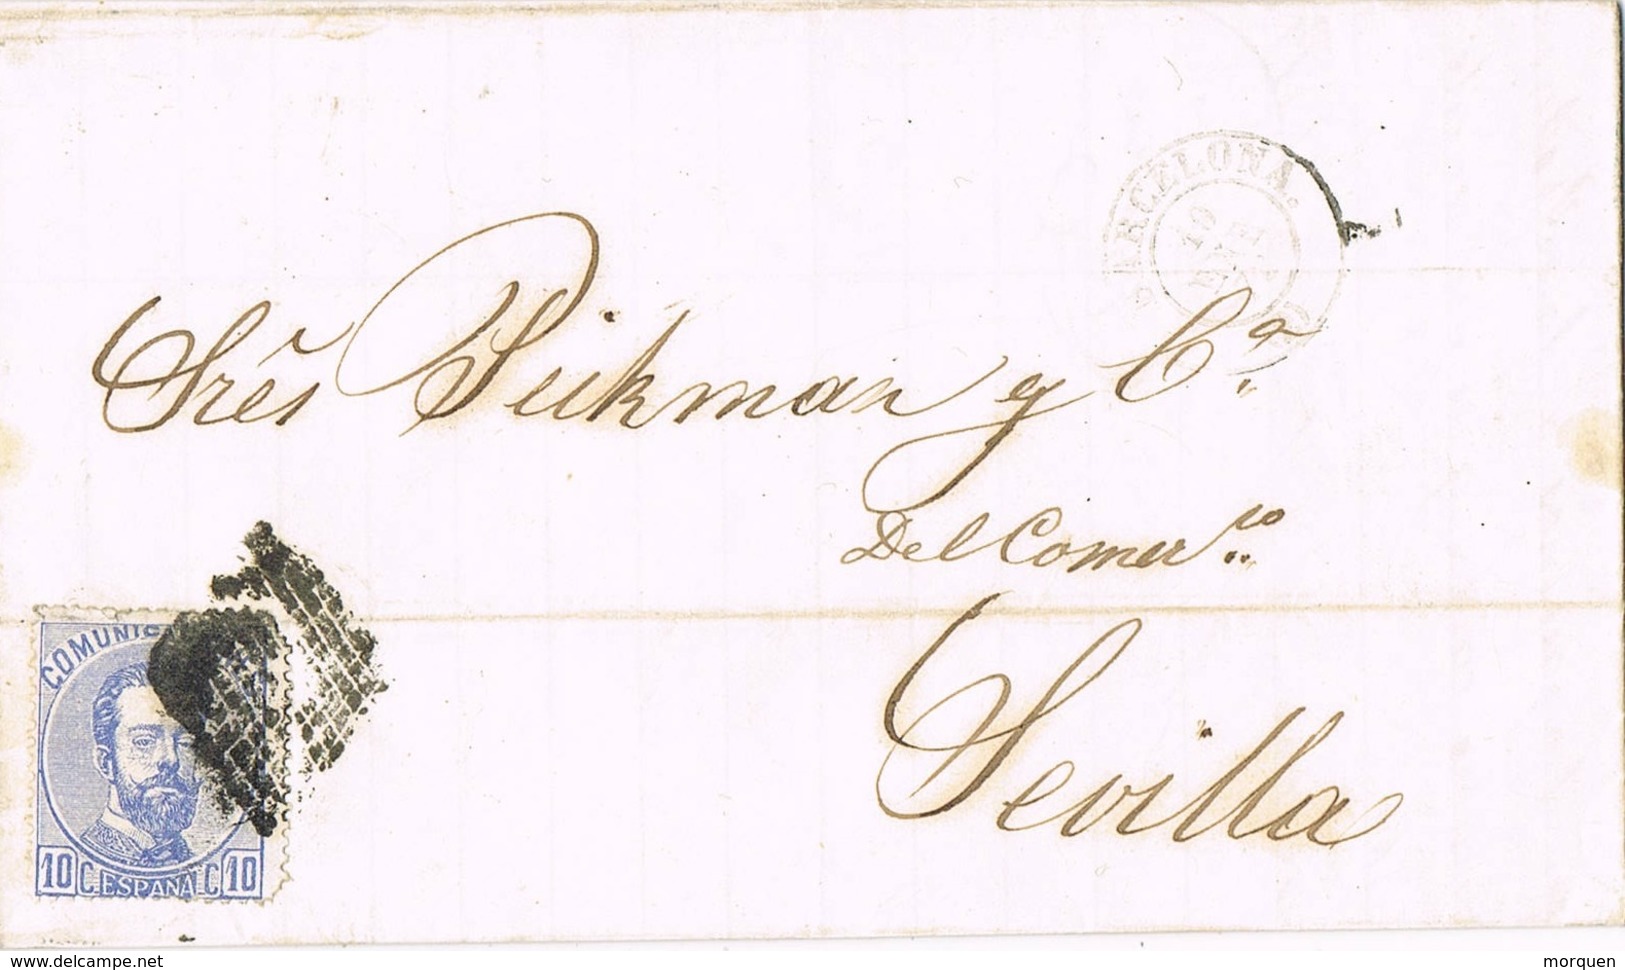 BARCELONA.
10
Sres Pickman y Ca.
Del Comerco
Sevilla
COMUNIC
10 C. ESPAÑA C. 10
www.delcampe.net
morquen